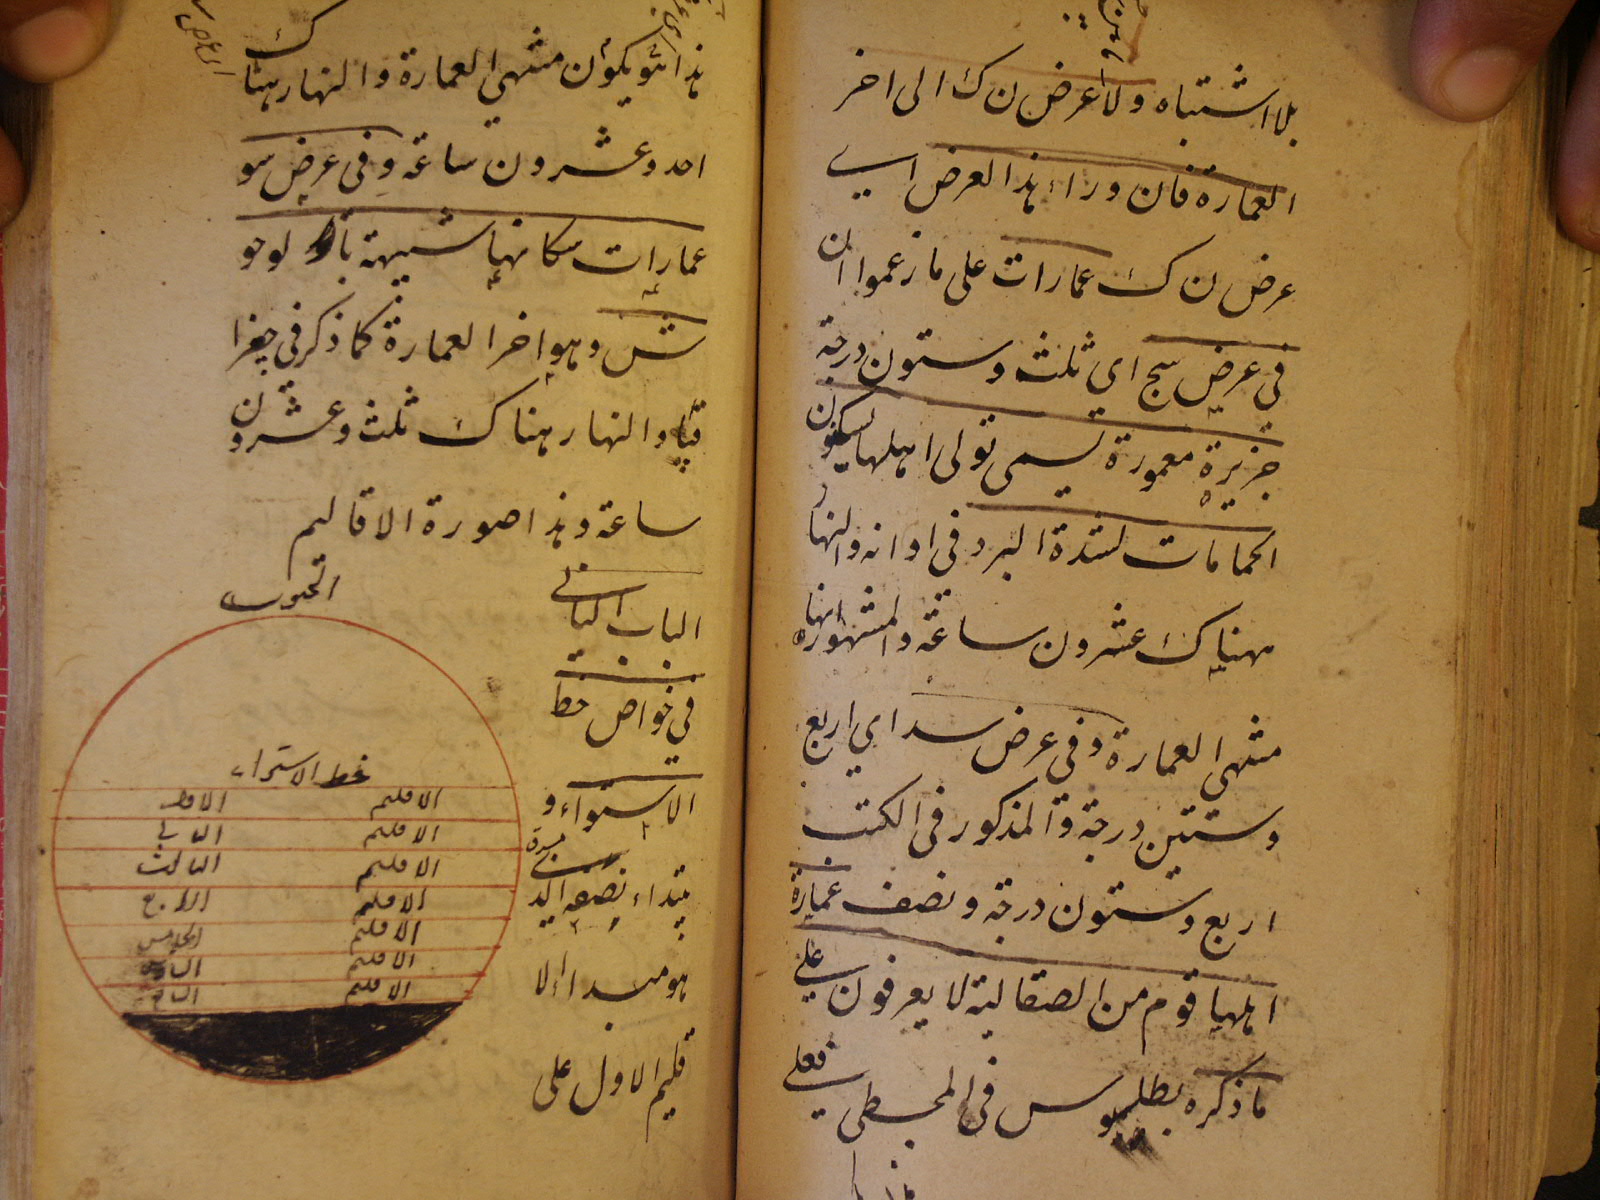 بلا اشتباه ولا عرض ن ك الى اخر
العمارة فان وراء هذا العرض اى
عرض ن ك عمارات على ما زعموا ان
في عرض سج اي ثلث وستون درجة
جزيرة معمورة تسمى تولى اهلها يسكنون
الحمامات لشدة البرد في اوانه والنهار
هناك عشرون ساعة والمشهور انها
منتهى العمارة وفي عرض سد اي اربع
وستين درجة والمذكور في الكتب
اربع وستون درجة ونصف عمارة
اهلها قوم من الصقالبة لا يعرفون على
ما ذكره بطلميوس في المجسطى فعلى
هذا يكون منتهى العمارة والنهار هناك
احد وعشرون ساعة وفي عرض سو
عمارات سكانها شبيهة بالوحو
ش وهو اخر العمارة كما ذكر في جغرا
فيا والنهار هناك ثلث وعشرون
ساعة وهذا صورة الاقاليم
الباب الثاني
في خواص خط
الاستواء و
يبتداء نصفه الذ
هو مبداء الا
قليم الاول على
الجنوب
خط الاستواء
الاقليم الاول
الاقليم الثاني
الاقليم الثالث
الاقليم الرابع
الاقليم الخامس
الاقليم السادس
الاقليم السابع